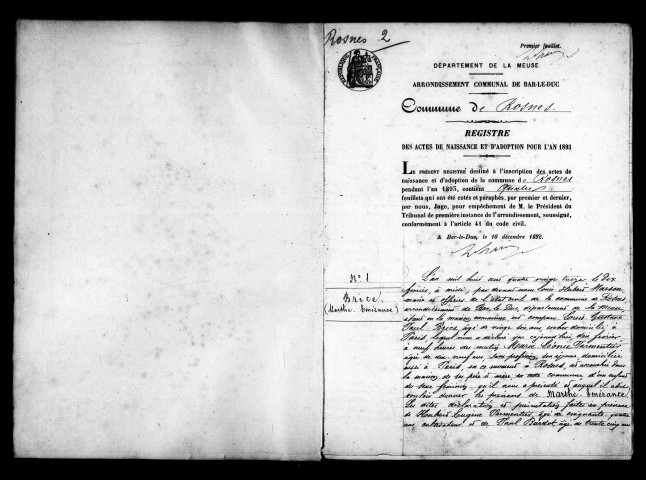 Rosnes 2
Premier feuillet.
RÉPUBLIQUE FRANÇAISE
DÉPARTEMENT DE LA MEUSE
ARRONDISSEMENT COMMUNAL DE BAR-LE-DUC
Commune de Rosnes.
REGISTRE
DES ACTES DE NAISSANCE ET D'ADOPTION POUR L'AN 1893
LE PRÉSENT REGISTRE destiné à l'inscription des actes de
naissance et d'adoption de la commune de Rosnes
pendant l'an 1893, contient Quatre
feuillets qui ont été cotés et paraphés, par premier et dernier,
par nous, Juge, pour empêchement de M. le Président du
Tribunal de première instance de l'arrondissement, soussigné,
conformément à l'article 41 du code civil.
A Bar-le-Duc, le 10 décembre 1892.
N° 1
Brice
(Marthe Émérance)
L'an mil huit cent quatre vingt treize le dix
février, à midi, par devant nous Louis Hubert
maire et officier de l'état civil de la commune de Rosnes,
arrondissement de Bar le Duc, département de la Meuse,
étant en la maison commune, est comparu Louis Gustave
Paul Brice âgé de vingt six ans, cocher domicilié à
Paris, lequel nous a déclaré que cejourd'hui dix février
à neuf heures du matin Marie Léonie Parmentier
âgée de dix neuf ans, sans profession, son épouse domiciliée
aussi à Paris, en ce moment à Rosnes, est accouchée dans
la maison de ses père et mère, en cette commune d'un enfant
de sexe féminin, qu'il nous a présenté et auquel il a déclaré
vouloir donner les prénoms de Marthe Émérance.
Les dites déclaration et présentation faites en présence
de Hubert Eugène Parmentier, âgé de cinquante quatre
ans, cultivateur et de Paul Bardot âgé de trente cinq ans